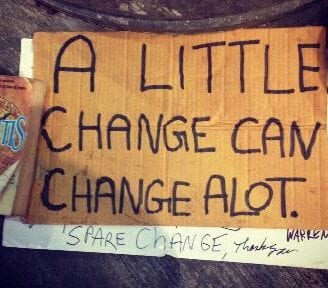 A LITTLE
CHANGE CAN
CHANGE ALOT.
SPARE CHANGE, Thanks
WARREN